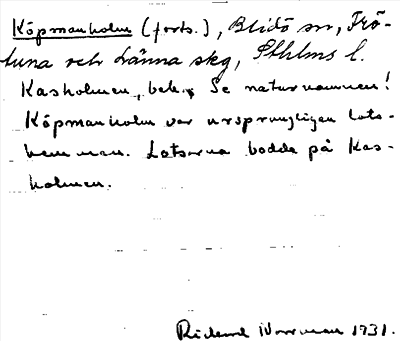 Köpmanholm (forts.), Blidö sn, Frö-
tuna och Länna skg, Sthlms l.
Kasholmen, beb. Se naturnamnen!
Köpmanholm var ursprungligen lots-
hemman. Lotsarna bodde på Kas-
holmen.
Rickard Norrman 1931.